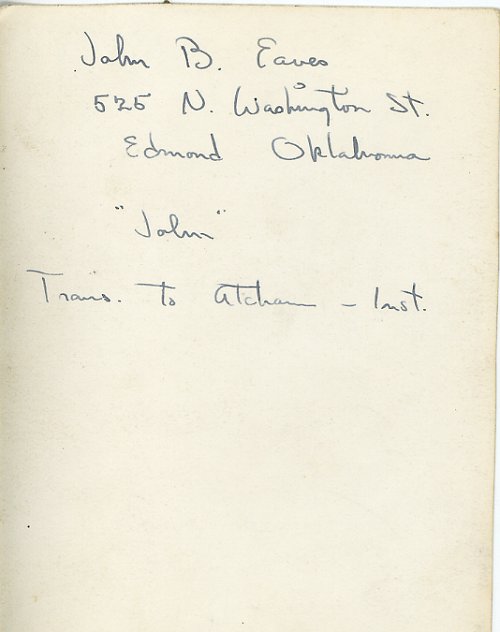 John B. Eaves
525 N. Washington St.
Edmond Oklahoma
"John"
Trans. to Atcham - Inst.